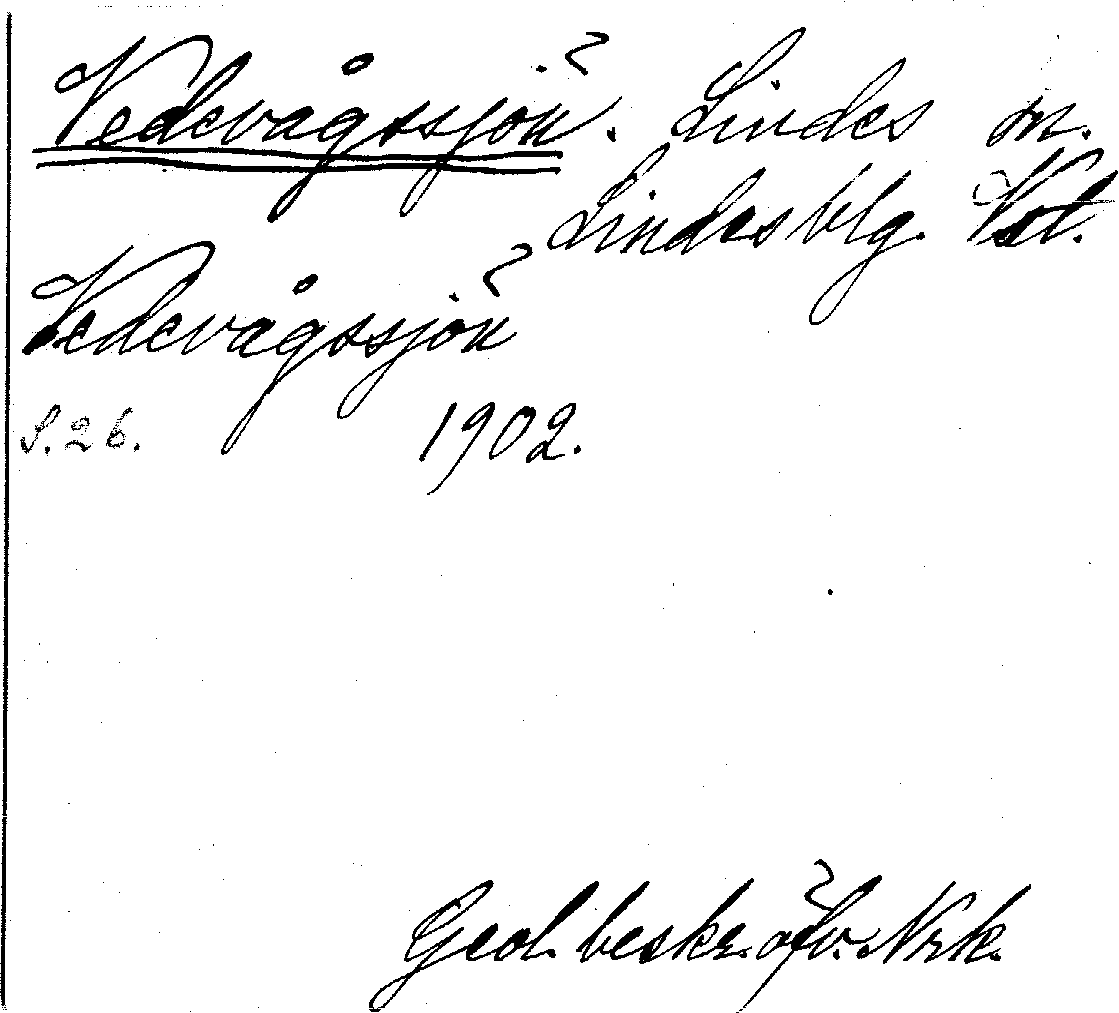 Vedevågssjön. Lindes sn.
Lindesblg. Vstl.
Vedevågssjön
S. 26. 1902.
Geol. beskr. öfv. Nrk.